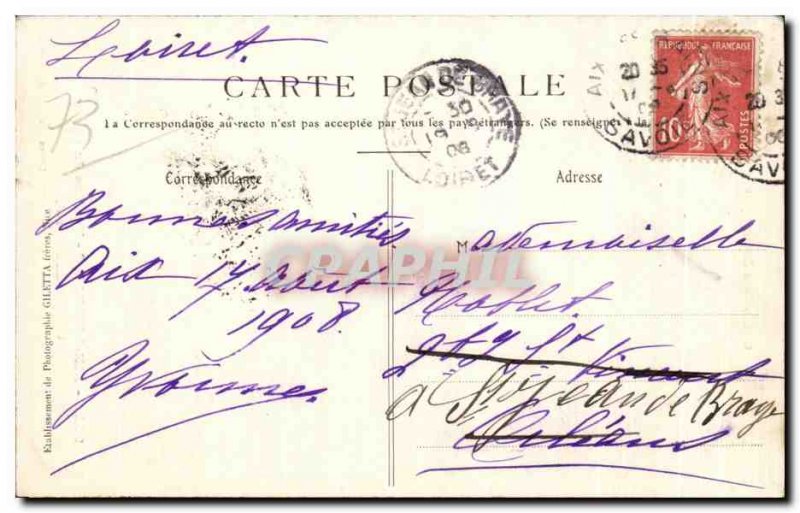 Loiret.
CARTE POSTALE
La Correspondance au recto n'est pas acceptée par tous les pays étrangers. (Se renseigner à la
Correspondance
Adresse
73
Bonnes amitiés
Aix 17 Août
1908.
Yvonne
Mademoiselle
St Vincent
à St Jean de Braye
Orléans
Etablissement de Photographie GILETTA frères, Nice
REPUBLIQUE FRANÇAISE
10c
POSTES
AIX
SAVOIE
LOIRET
CPAPHIL